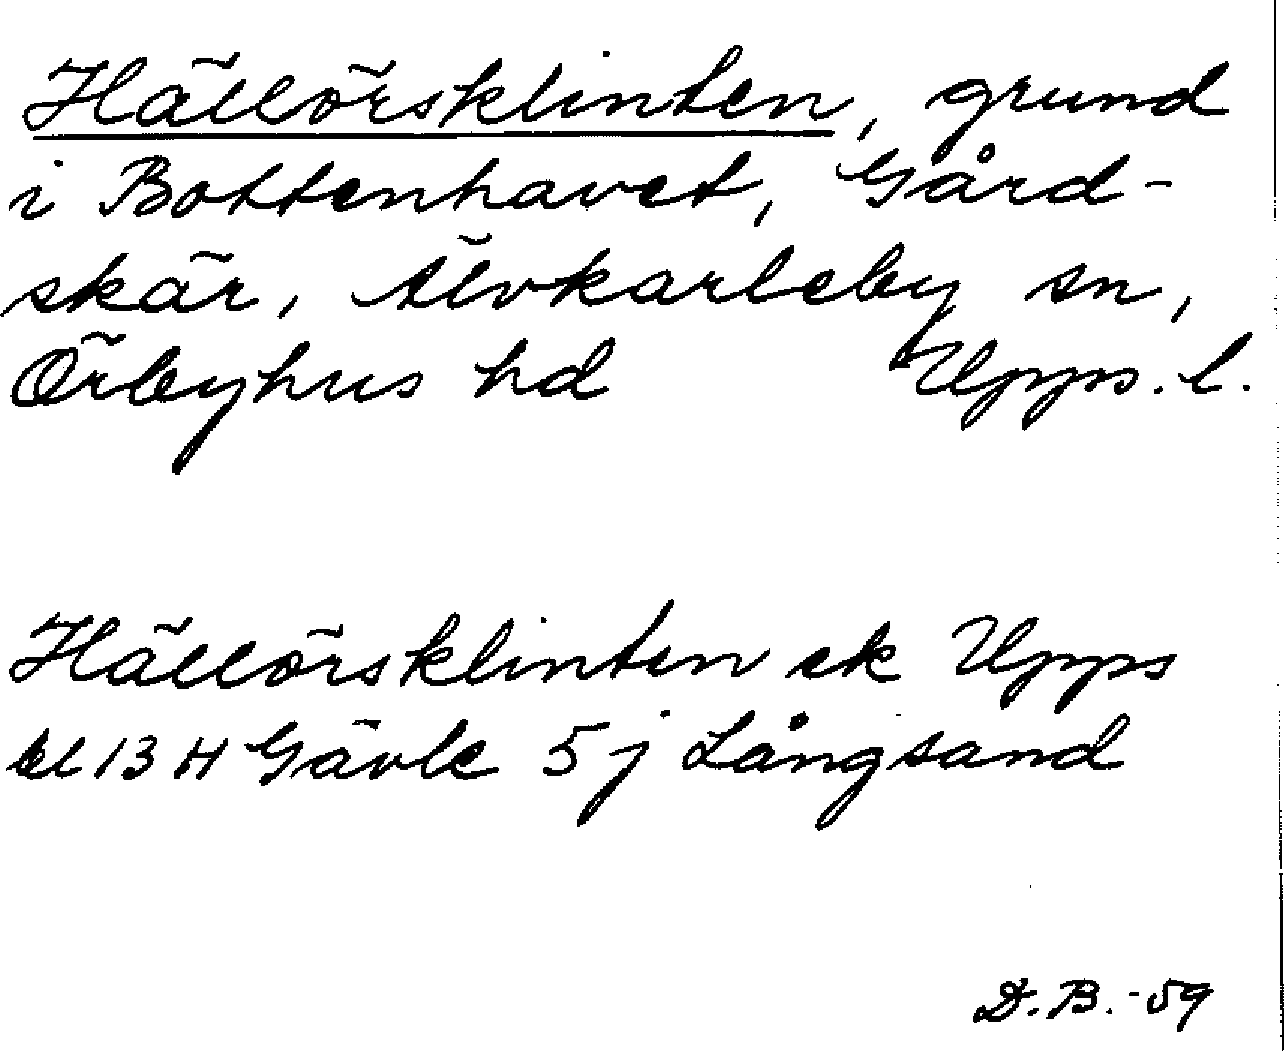 Hällörsklinten, grund
i Bottenhavet, Gård-
skär, Älvkarleby sn,
Örbyhus hd Upps. l.
Hällörsklinten ek Upps
bl 13 H Gävle 5 j Långsand
D.B.-59